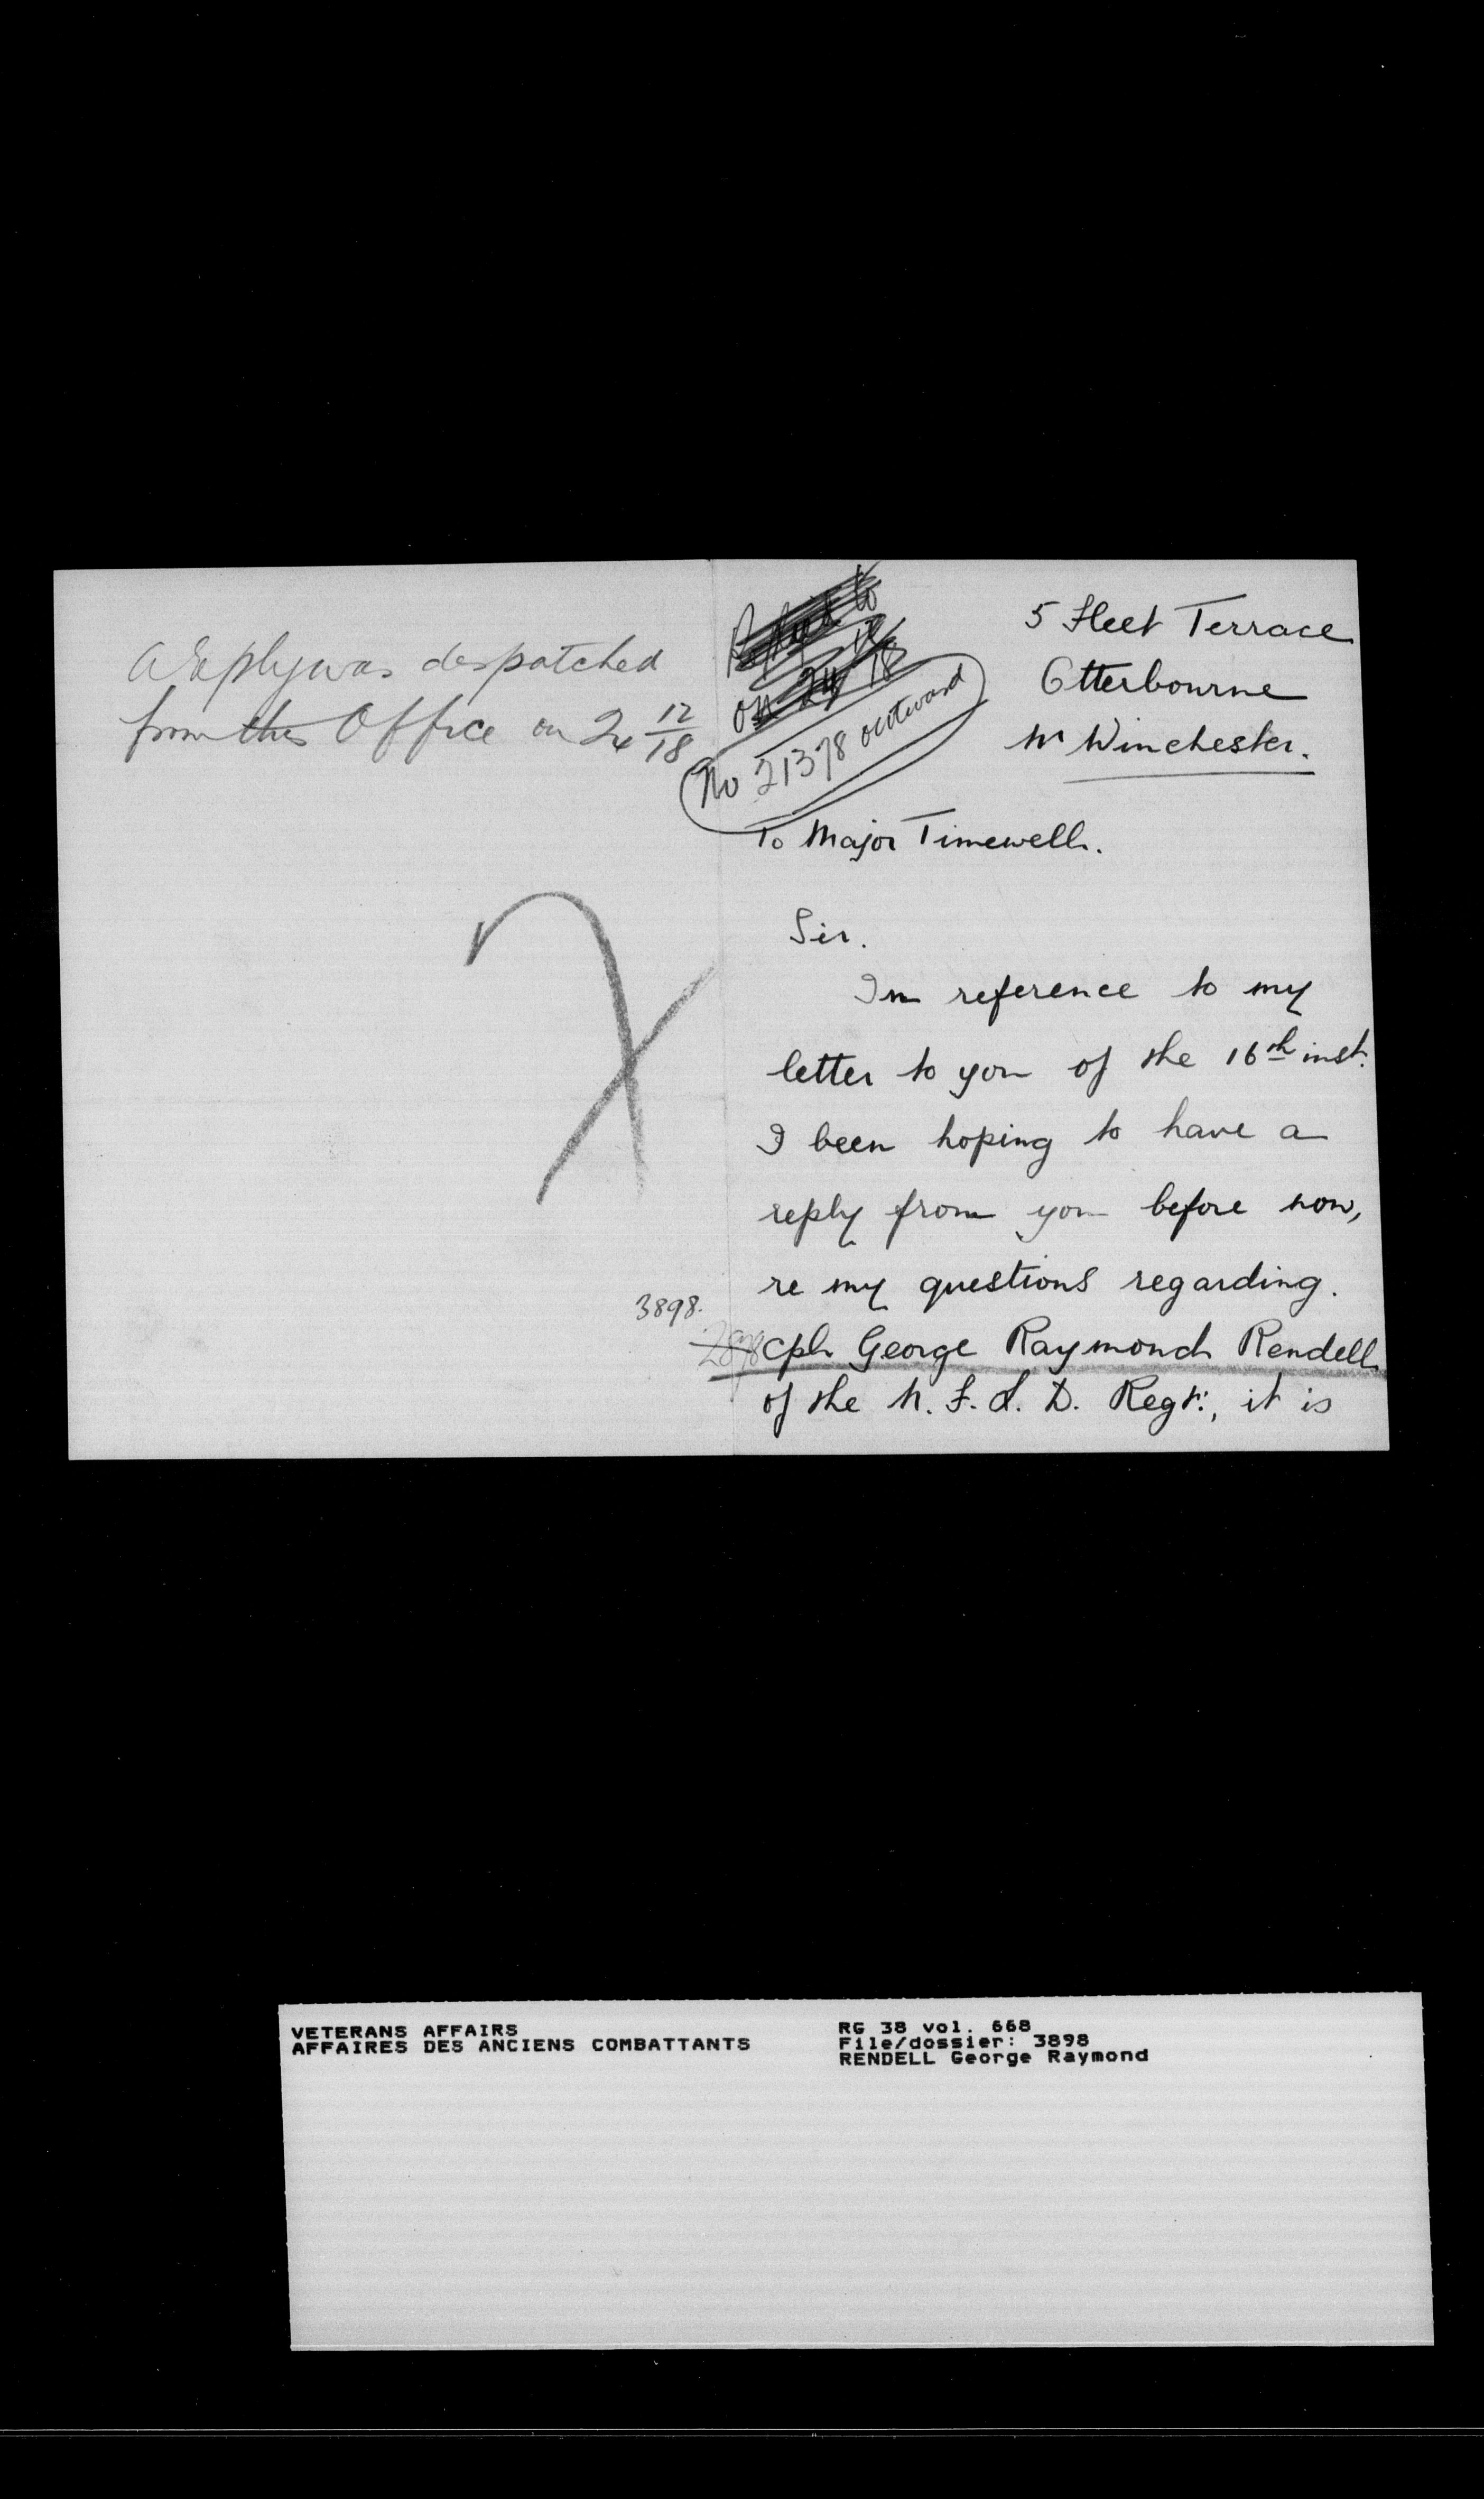 A Reply was despatched
from this Office on 24 12/18
Replied to
on 24 12/18
No 21378 outward
5 Fleet Terrace
Otterbourne
Nr Winchester.
To Major Timewell.
Sir.
In reference to my
letter to you of the 16th inst.
I been hoping to have a
reply from you before now,
re my questions regarding.
3898.
Cpl. George Raymond Rendell
of the N. F. L. D. Regt:, it is
VETERANS AFFAIRS
AFFAIRES DES ANCIENS COMBATTANTS
RG 38 vol. 668
File/dossier: 3898
RENDELL George Raymond